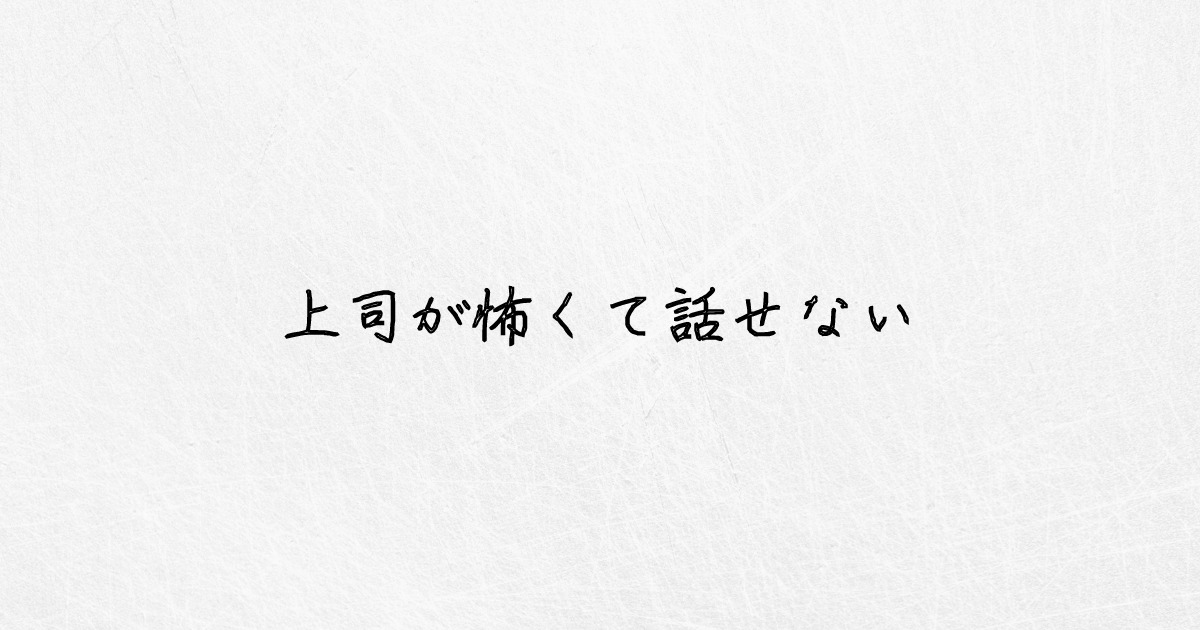 上司が怖くて話せない